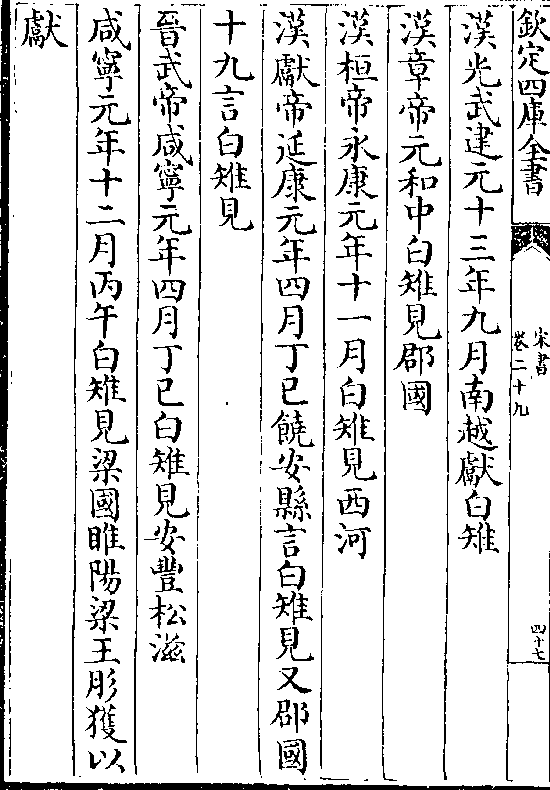 欽定四庫全書
宋書
卷二十九
四十七
漢光武建元十三年九月南越獻白雉
漢章帝元和中白雉見郡國
漢桓帝永康元年十一月白雉見西河
漢獻帝延康元年四月丁巳饒安縣言白雉見又郡國
十九言白雉見
晉武帝咸寧元年四月丁巳白雉見安豐松滋
咸寧元年十二月丙午白雉見梁國睢陽梁王肜獲以
獻